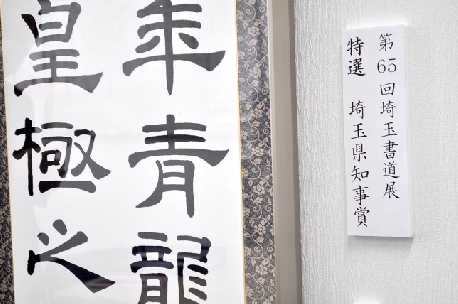 年青龍
皇極之
第65回埼玉書道展
特選 埼玉県知事賞